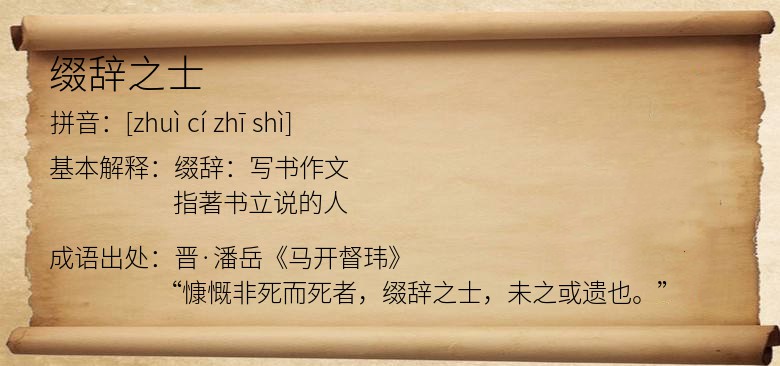 缀辞之士
拼音：[zhuì cí zhī shì]
基本解释：缀辞：写书作文
指著书立说的人
成语出处：晋·潘岳《马开督玮》
“慷慨非死而死者，缀辞之士，未之或遗也。”